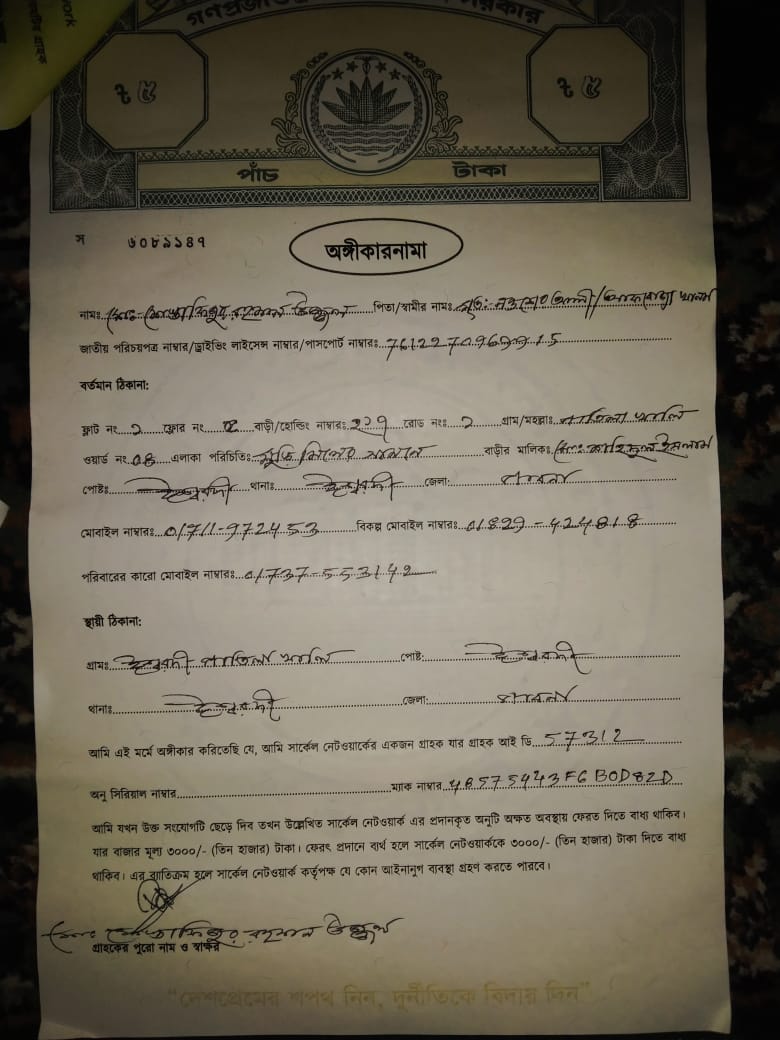 work
গণপ্রজাতন্ত্রী সরকার
৳ ৫ ৳ ৫
পাঁচ টাকা
স ৬০৮৯১৪৭
অঙ্গীকারনামা
নামঃ মোঃ মোস্তাফিজুর রহমান উজ্জ্বল পিতা/স্বামীর নামঃ মৃত:
জাতীয় পরিচয়পত্র নাম্বার/ড্রাইভিং লাইসেন্স নাম্বার/পাসপোর্ট নাম্বারঃ
বর্তমান ঠিকানা:
ফ্লাট নং ফ্লোর নং বাড়ী/হোল্ডিং নাম্বারঃ রোড নংঃ গ্রাম/মহল্লাঃ
ওয়ার্ড নং এলাকা পরিচিতিঃ মুড়ি মিলের সামনে বাড়ীর মালিকঃ মোঃ ইসলাম
পোষ্টঃ ঈশ্বরদী থানাঃ ঈশ্বরদী জেলা: পাবনা
মোবাইল নাম্বারঃ 01711-972453 বিকল্প মোবাইল নাম্বারঃ 01829-424818
পরিবারের কারো মোবাইল নাম্বারঃ 01737-553142
স্থায়ী ঠিকানা:
গ্রামঃ ঈশ্বরদী পোষ্ট: ঈশ্বরদী
থানাঃ ঈশ্বরদী জেলা: পাবনা
আমি এই মর্মে অঙ্গীকার করিতেছি যে, আমি সার্কেল নেটওয়ার্কের একজন গ্রাহক যার গ্রাহক আই ডি 57312
অনু সিরিয়াল নাম্বার ম্যাক নাম্বার 48575443F6B0D82D
আমি যখন উক্ত সংযোগটি ছেড়ে দিব তখন উল্লেখিত সার্কেল নেটওয়ার্ক এর প্রদানকৃত অনুটি অক্ষত অবস্থায় ফেরত দিতে বাধ্য থাকিব।
যার বাজার মূল্য ৩০০০/- (তিন হাজার) টাকা। ফেরৎ প্রদানে ব্যর্থ হলে সার্কেল নেটওয়ার্ককে ৩০০০/- (তিন হাজার) টাকা দিতে বাধ্য
থাকিব। এর ব্যতিক্রম হলে সার্কেল নেটওয়ার্ক কর্তৃপক্ষ যে কোন আইনানুগ ব্যবস্থা গ্রহণ করতে পারবে।
মোঃ মোস্তাফিজুর রহমান উজ্জ্বল
গ্রাহকের পুরো নাম ও স্বাক্ষর
“দেশপ্রেমের শপথ নিন, দুর্নীতিকে বিদায় দিন”